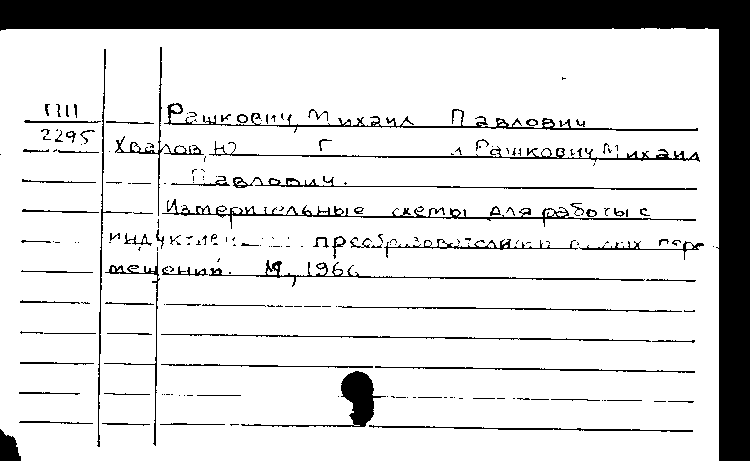 ПП Рашкович, Михаил Павлович
2295 Хвалов, Ю Г и Рашкович, Михаил
Павлович.
Измерительные схемы для работы с
преобразователями пере
мещений. М., 1966